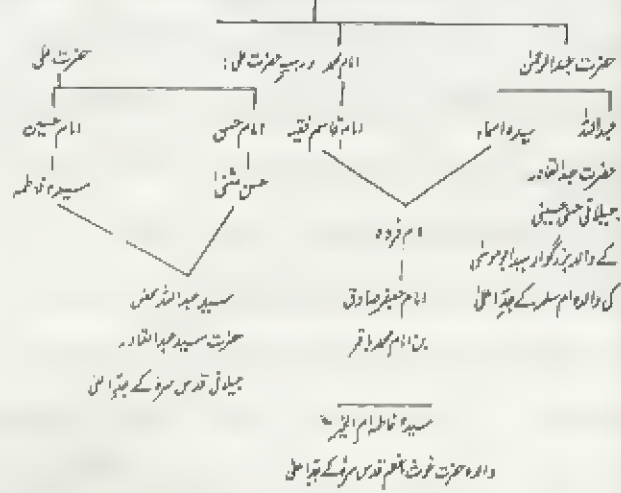 حضرت عبدالرحمٰن
امام محمد ربیب حضرت علی :
حضرت علی
عبداللہ
سیدہ اسماء
امام قاسم فقیہ
امام حسن
امام حسین
حضرت عبدالقادر
جیلانی حسنی حسینی
کے والد بزرگوار سید ابو موسٰی
کی والدہ ام سلمہ کے جدِ اعلیٰ
حسن مثنیٰ
سیدہ فاطمہ
ام فروہ
امام جعفر صادق
بن امام محمد باقر
سید عبداللہ محض
حضرت سید عبدالقادر
جیلانی قدس سرہٗ کے جدِ اعلیٰ
سیدہ فاطمہ ام الخیر
والدہ حضرت غوث اعظم قدس سرہٗ کے جدِ اعلیٰ